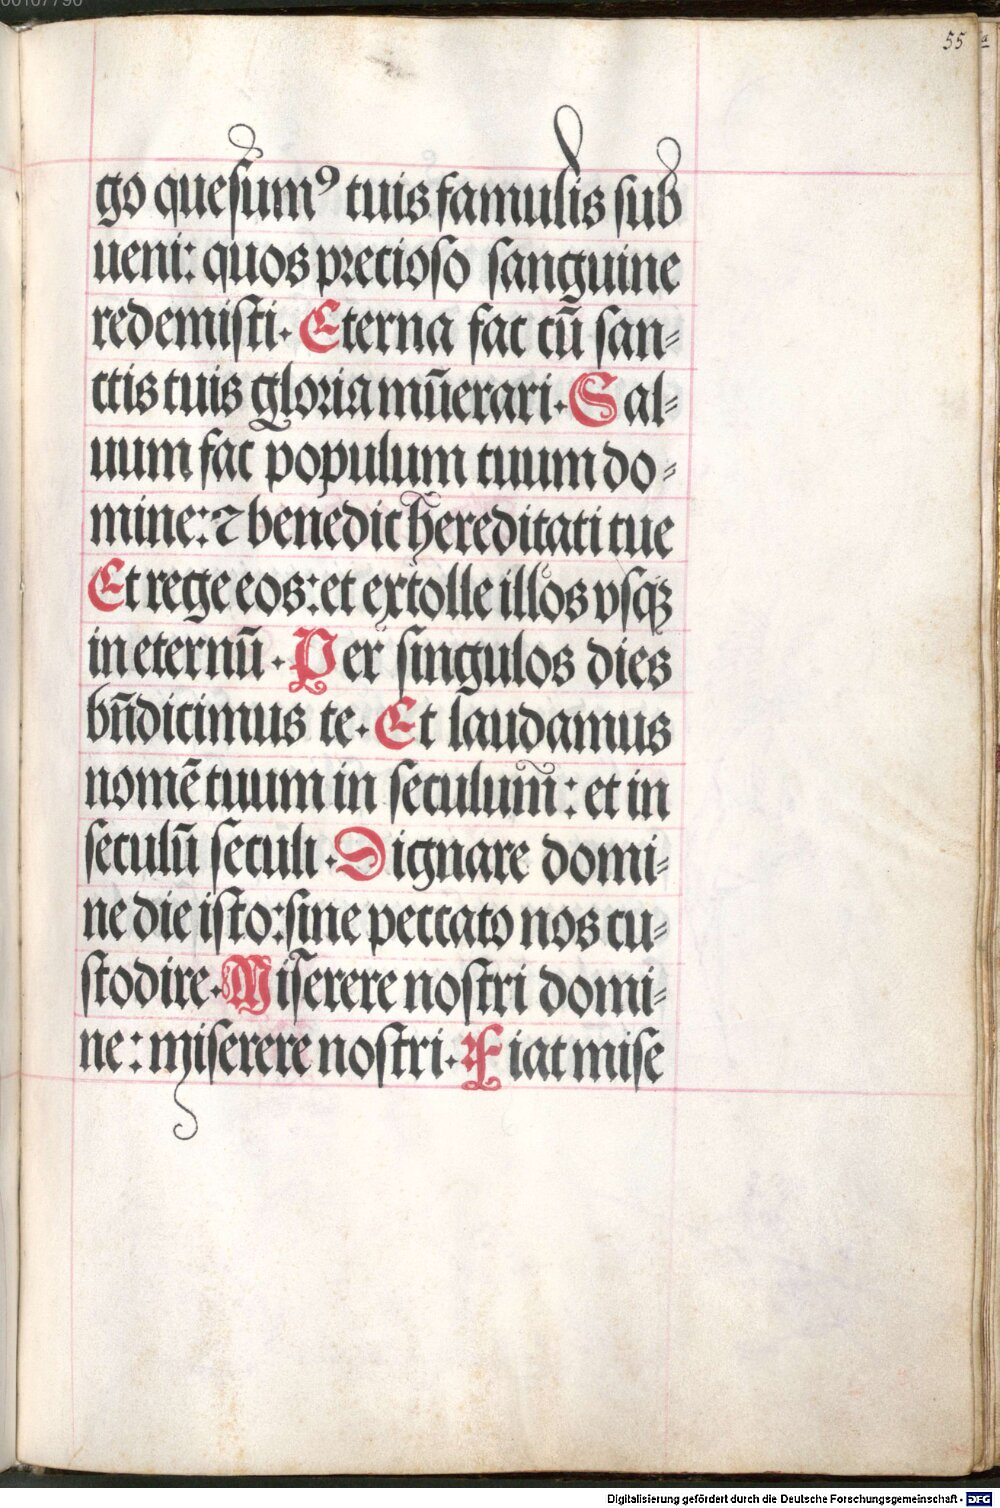 55
go quesumꝰ tuis famulis sub
ueni: quos precioso sanguine
redemisti. Eterna fac cū san⸗
ctis tuis gloria mūerari. Sal⸗
uum fac populum tuum do⸗
mine: ⁊ benedic hereditati tue
Et rege eos: et extolle illos vsqꝫ
in eternū. Per singulos dies
bn̄dicimus te. Et laudamus
nomē tuum in seculum: et in
seculū seculi. Dignare domi⸗
ne die isto: sine peccato nos cu⸗
stodire. Miserere nostri domi⸗
ne: miserere nostri. Fiat mise
Digitalisierung gefördert durch die Deutsche Forschungsgemeinschaft - DFG